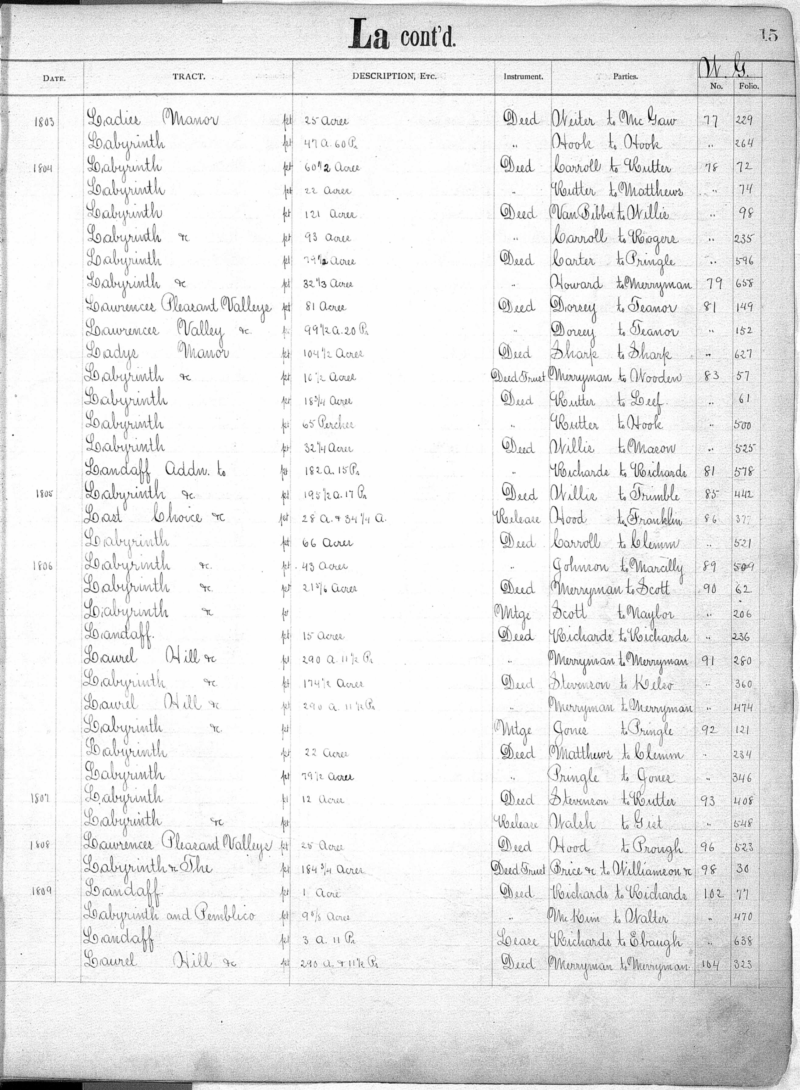 La cont'd.
15
W. G.
Date. TRACT. DESCRIPTION, Etc. Instrument. Parties. No. Folio.
1803 Ladies Manor pt 25 Acres Deed Weiter to Mc Gaw 77 229
Labyrinth pt 47 A. 60 Ps " Hook to Hook 264
1804 Labyrinth pt 60 1/2 Acres Deed Carroll to Rutter 78 72
Labyrinth pt 22 Acres " Rutter to Matthews " 74
Labyrinth pt 121 Acres Deed Van Bibber to Willis " 98
Labyrinth &c pt 93 Acres " Carroll to Rogers " 235
Labyrinth pt 79 1/2 Acres Deed Carter to Pringle " 596
Labyrinth &c pt 32 1/3 Acres " Howard to Merryman 79 658
Lawrences Pleasant Valleys pt 81 Acres Deed Dorsey to Teanor 81 149
Lawrences Valley &c 99 1/2 A. 20 Ps " Dorsey to Teanor " 152
Ladys Manor pt 104 1/2 Acres Deed Sharp to Sharp " 627
Labyrinth &c pt 16 1/2 Acres Deed Trust Merryman to Wooden 83 57
Labyrinth pt 18 3/4 Acres Deed Rutter to Leef " 61
Labyrinth pt 65 Perches " Rutter to Hook " 500
Labyrinth pt 32 1/4 Acres Deed Willis to Mason " 525
Landaff Addn. to pt 182 A. 15 Ps " Richards to Richards 81 578
1805 Labyrinth &c pt 195 1/2 A. 17 Ps Deed Willis to Trimble 85 442
Last Choice &c pt 28 A. & 34 1/4 A. Release Hood to Franklin 86
Labyrinth pt 66 Acres Deed Carroll to Clemm " 521
1806 Labyrinth &c. pt 43 Acres " Johnson to Marcilly 89 509
Labyrinth &c. pt 21 5/6 Acres Deed Merryman to Scott 90 62
Labyrinth &c pt Mtge Scott to Naylor " 206
Landaff. pt 15 Acres Deed Richards to Richards " 236
Laurel Hill &c pt 290 A. 11 1/2 Ps " Merryman to Merryman 91 280
Labyrinth &c pt 174 1/2 Acres Deed Stevenson to Kelso " 360
Laurel Hill &c pt 290 A. 11 1/2 Ps " Merryman to Merryman " 474
Labyrinth &c pt Mtge Jones to Pringle 92 121
Labyrinth pt 22 Acres Deed Matthews to Clemm " 234
Labyrinth pt 79 1/2 Acres " Pringle to Jones " 346
1807 Labyrinth pt 12 Acres Deed Stevenson to Rutter 93 408
Labyrinth &c pt Release Walsh to Gist " 548
1808 Lawrences Pleasant Valleys pt 25 Acres Deed Hood to Prough 96 523
Labyrinth & The pt 184 3/4 Acres Deed Trust Price &c to Williamson &c 98 30
1809 Landaff pt 1 Acre Deed Richards to Richards 102 77
Labyrinth and Pemblico pt Acres " Mc Kim to Walter " 470
Landaff pt 3 A. 11 Ps Lease Richards to Ebaugh " 638
Laurel Hill &c pt 290 A. & 11 1/2 Ps Deed Merryman to Merryman 104 323